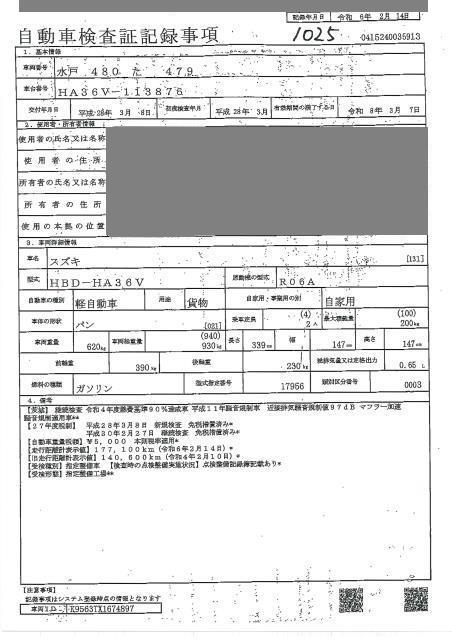 記録年月日 令和 6年 2月 14日
自動車検査証記録事項 1025 0415240035913
1. 基本情報
車両番号 水戸 480 た 479
車台番号 HA36V-113876
交付年月日 平成28年 3月 8日 初度検査年月 平成 28年 3月 有効期間の満了する日 令和 8年 3月 7日
2. 使用者・所有者情報
使用者の氏名又は名称
使用者の住所
所有者の氏名又は名称
所有者の住所
使用の本拠の位置
3. 車両詳細情報
車名 スズキ [131]
型式 HBD-HA36V 原動機の型式 R06A
自動車の種別 軽自動車 用途 貨物 自家用・事業用の別 自家用
車体の形状 バン [021] 乗車定員 (4) 2人 最大積載量 (100) 200kg
車両重量 620kg 車両総重量 (940) 930kg 長さ 339cm 幅 147cm 高さ 147cm
前軸重 390kg 後軸重 230kg 総排気量又は定格出力 0.65 L
燃料の種類 ガソリン 型式指定番号 17956 類別区分番号 0003
4. 備考
【茨城】 継続検査 令和4年度燃費基準90%達成車 平成11年騒音規制車 近接排気騒音規制値97dB マフラー加速
騒音規制適用車**
【27年度税制】 平成28年3月8日 新規検査 免税措置済み*
平成30年2月27日 継続検査 免税措置済み*
【自動車重量税額】 ¥5,000 本則税率適用*
【走行距離計表示値】 177,100km (令和6年2月14日) *
【旧走行距離計表示値】 140,600km (令和4年2月10日) *
【受検種別】 指定整備車 【検査時の点検整備実施状況】 点検整備記録簿記載あり*
【受検形態】 指定整備工場**
【注意事項】
記録事項はシステム登録時点の情報となります
車両ID K9563TX1674897